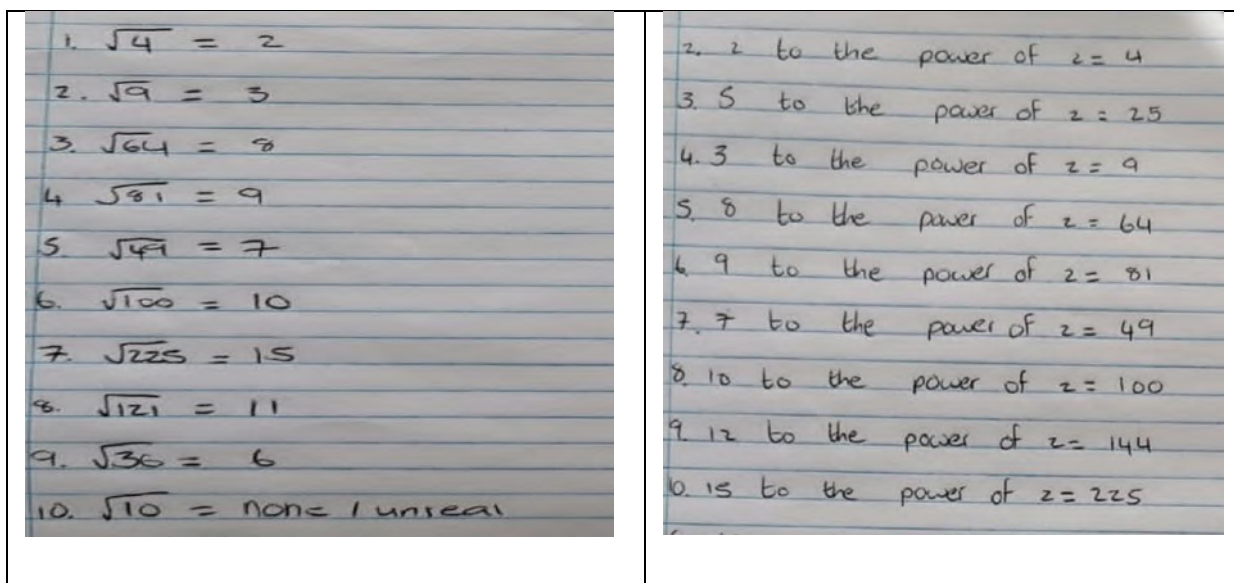 1. √4 = 2
2. √9 = 3
3. √64 = 8
4 √81 = 9
5. √49 = 7
6. √100 = 10
7. √225 = 15
8. √121 = 11
9. √36 = 6
10. √10 = none / unreal
2. 2 to the power of 2 = 4
3. 5 to the power of 2 = 25
4. 3 to the power of 2 = 9
5. 8 to the power of 2 = 64
6. 9 to the power of 2 = 81
7. 7 to the power of 2 = 49
8. 10 to the power of 2 = 100
9. 12 to the power of 2 = 144
0. 15 to the power of 2 = 225